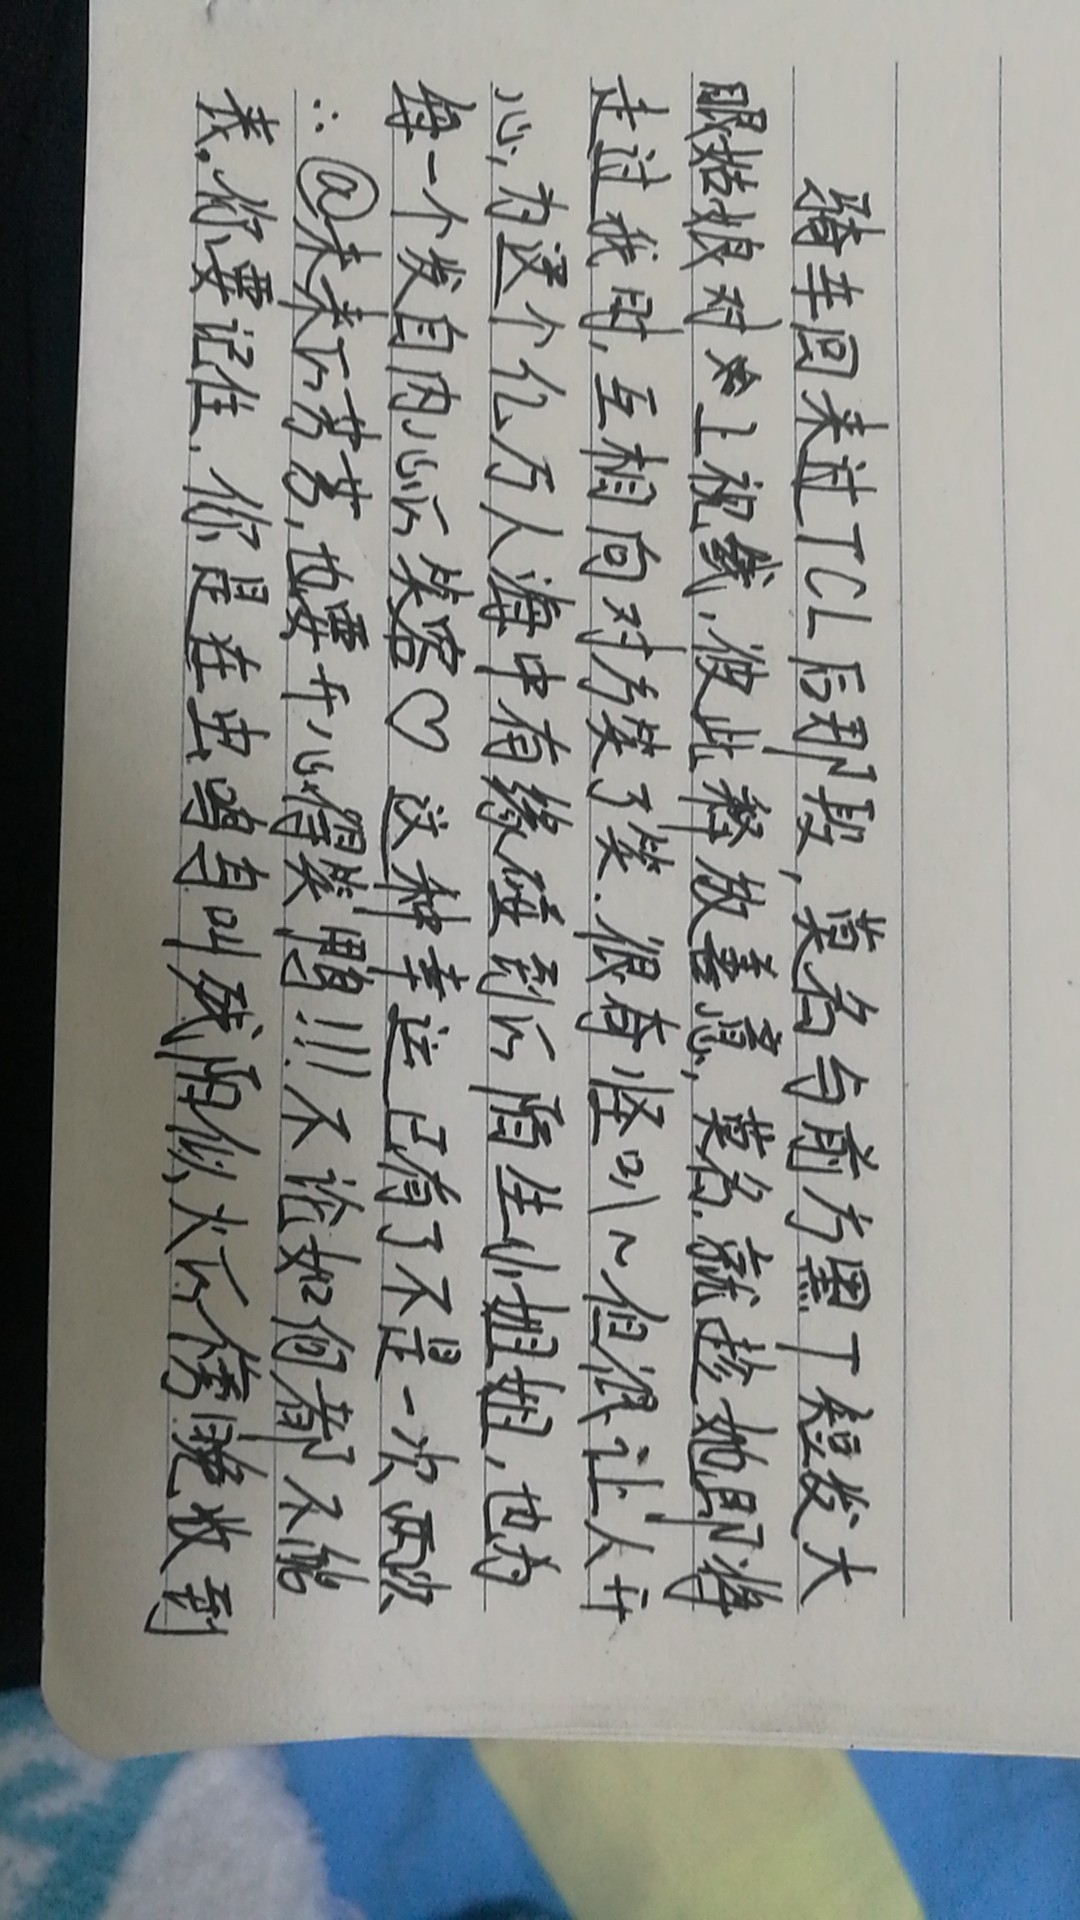 骑车回来过TCL后那段，莫名与前方黑丁短发大
眼姑娘对上视线，彼此释放善意，莫名，就趁她即将
走过我时，互相向对方笑了笑.很奇怪叭~但很让人开
心，为这个亿万人海中有缘碰到的陌生小姐姐，也为
每一个发自内心的笑容♡ 这种幸运已有了不是一次两次
∴@未来的芳芳，也要开心得笑鸭!!!不论如何都不能
丧。你要记住，你是在虫鸣鸟叫残阳似火的傍晚收到